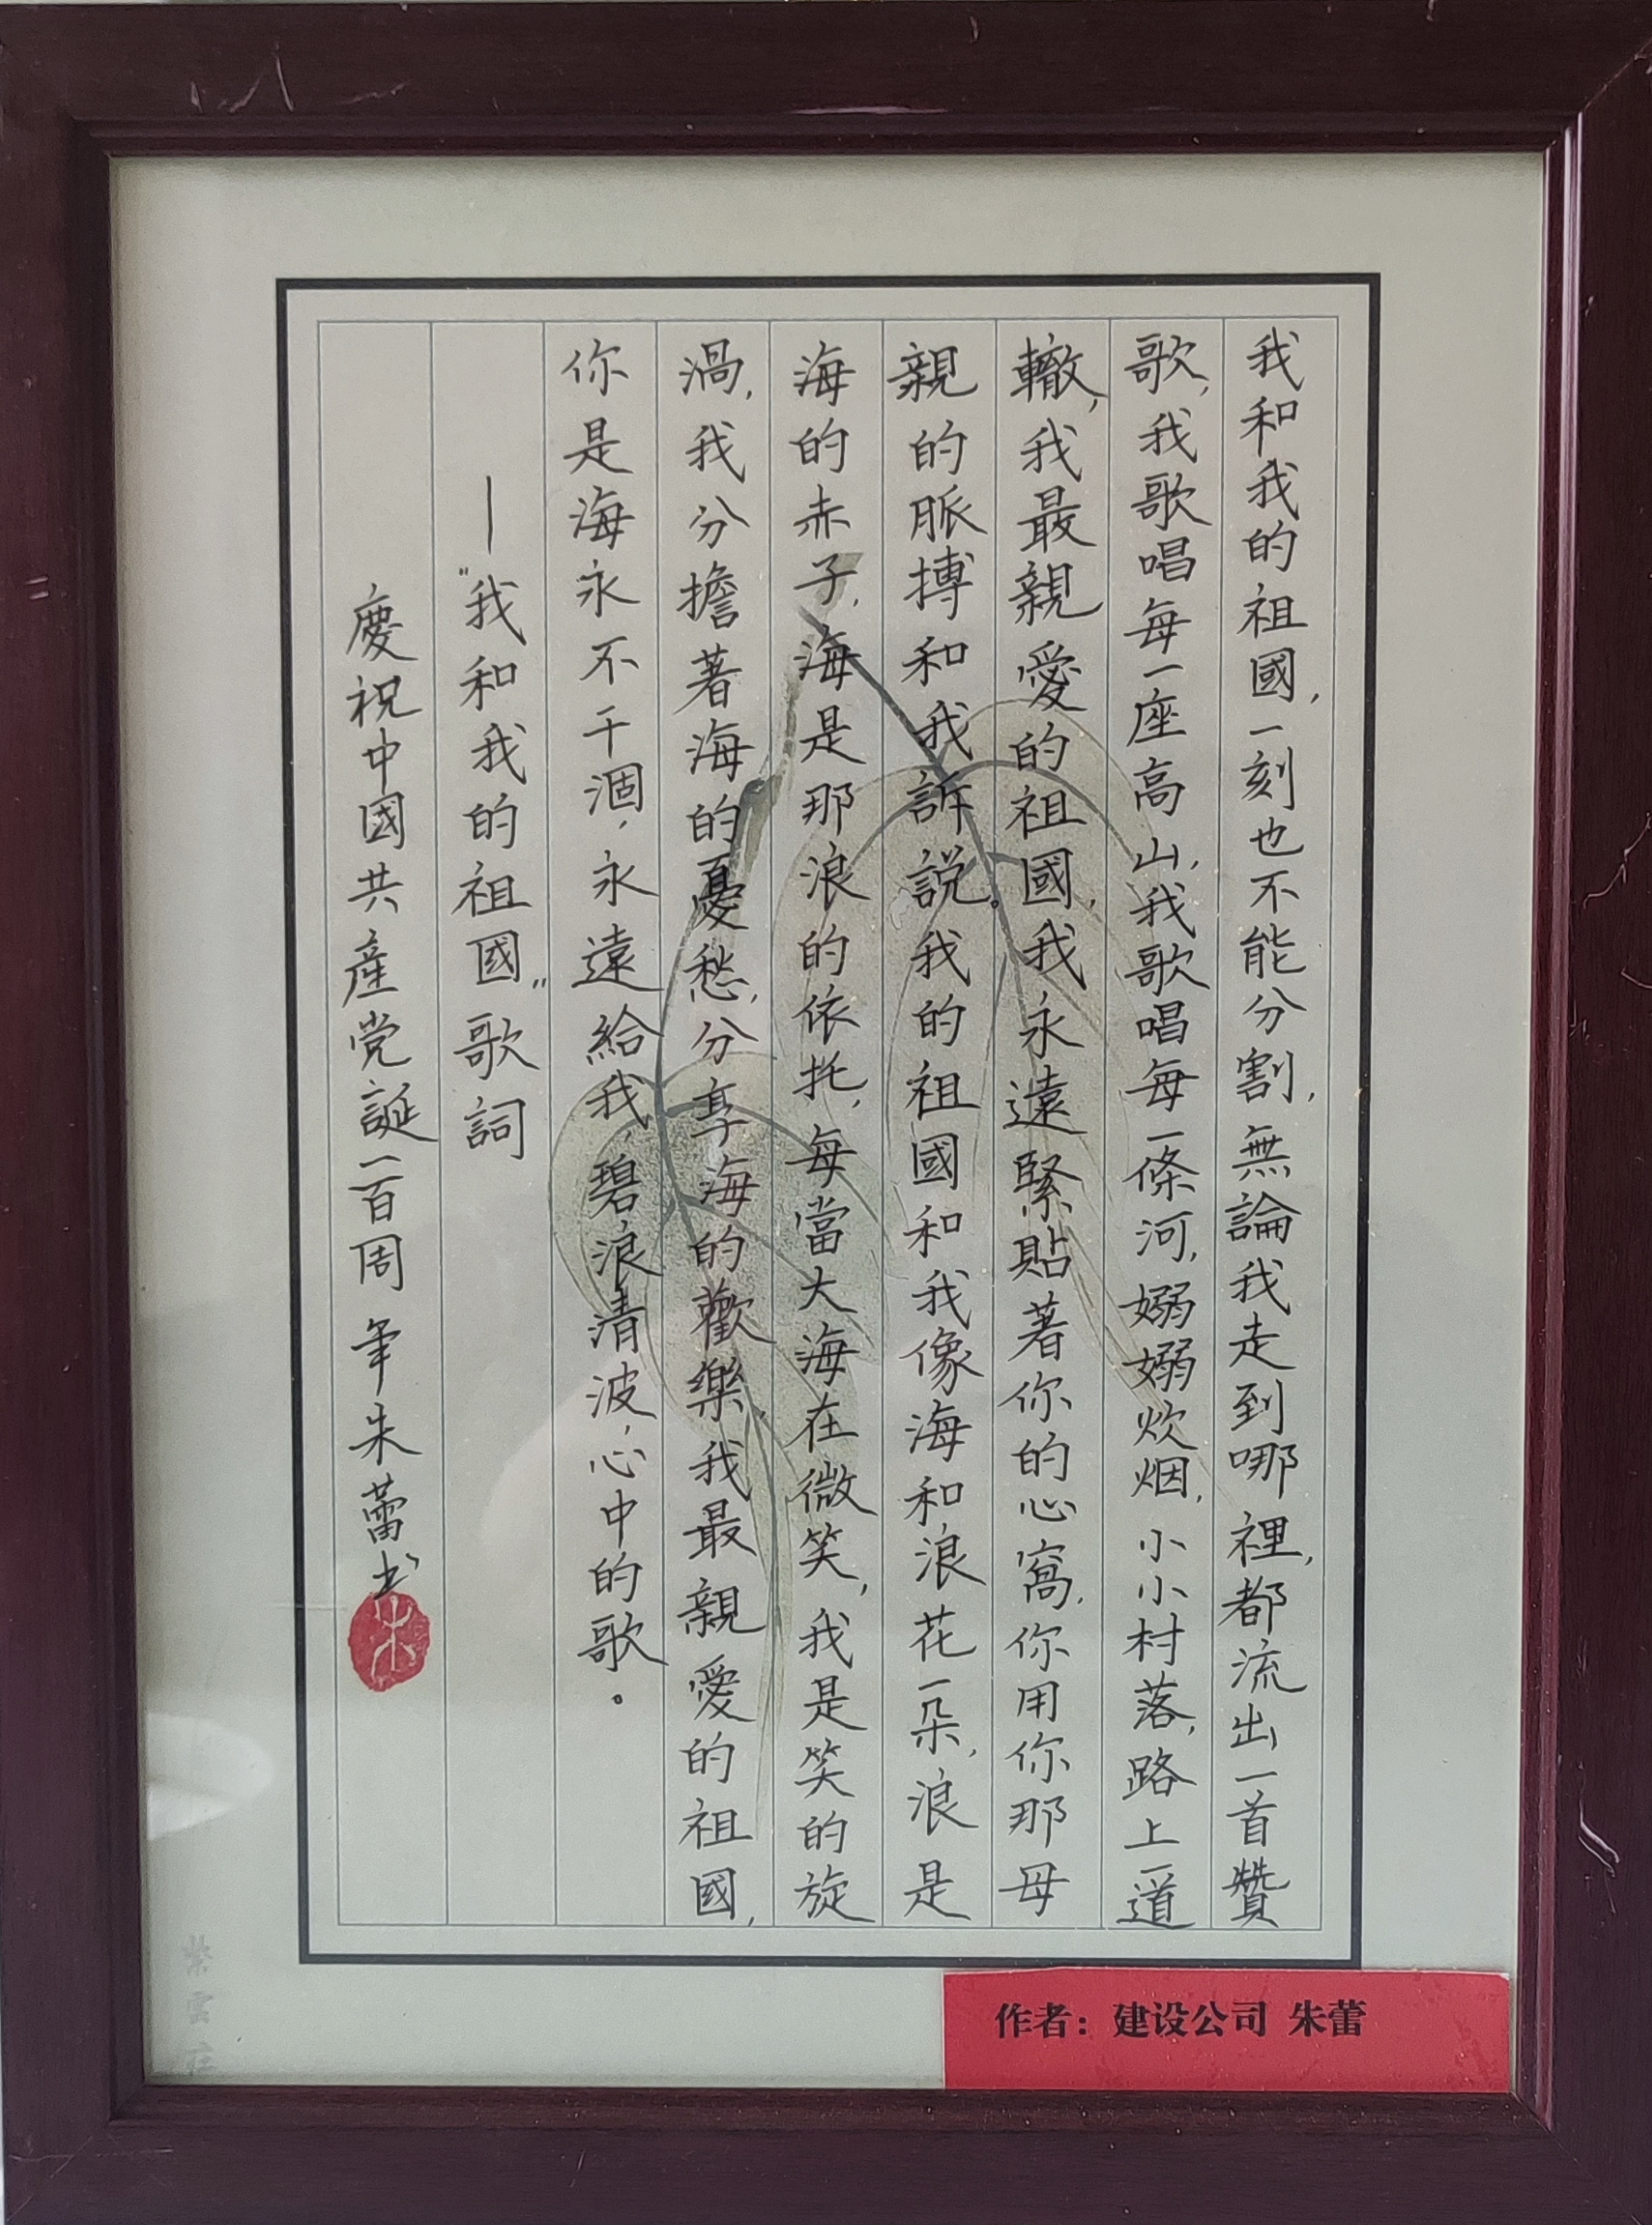 我和我的祖國，一刻也不能分割，無論我走到哪裡，都流出一首贊
歌，我歌唱每一座高山，我歌唱每一條河，嫋嫋炊烟，小小村落，路上一道
轍，我最親愛的祖國，我永遠緊貼著你的心窩，你用你那母
親的脈搏和我訴説。我的祖國和我像海和浪花一朵，浪是
海的赤子，海是那浪的依托，每當大海在微笑，我是笑的旋
渦，我分擔著海的憂愁，分享海的歡樂，我最親愛的祖國，
你是海永不干涸，永遠給我，碧浪清波，心中的歌。
—“我和我的祖國”歌詞
慶祝中國共產党誕一百周年朱蕾书
朱
作者：建设公司 朱蕾